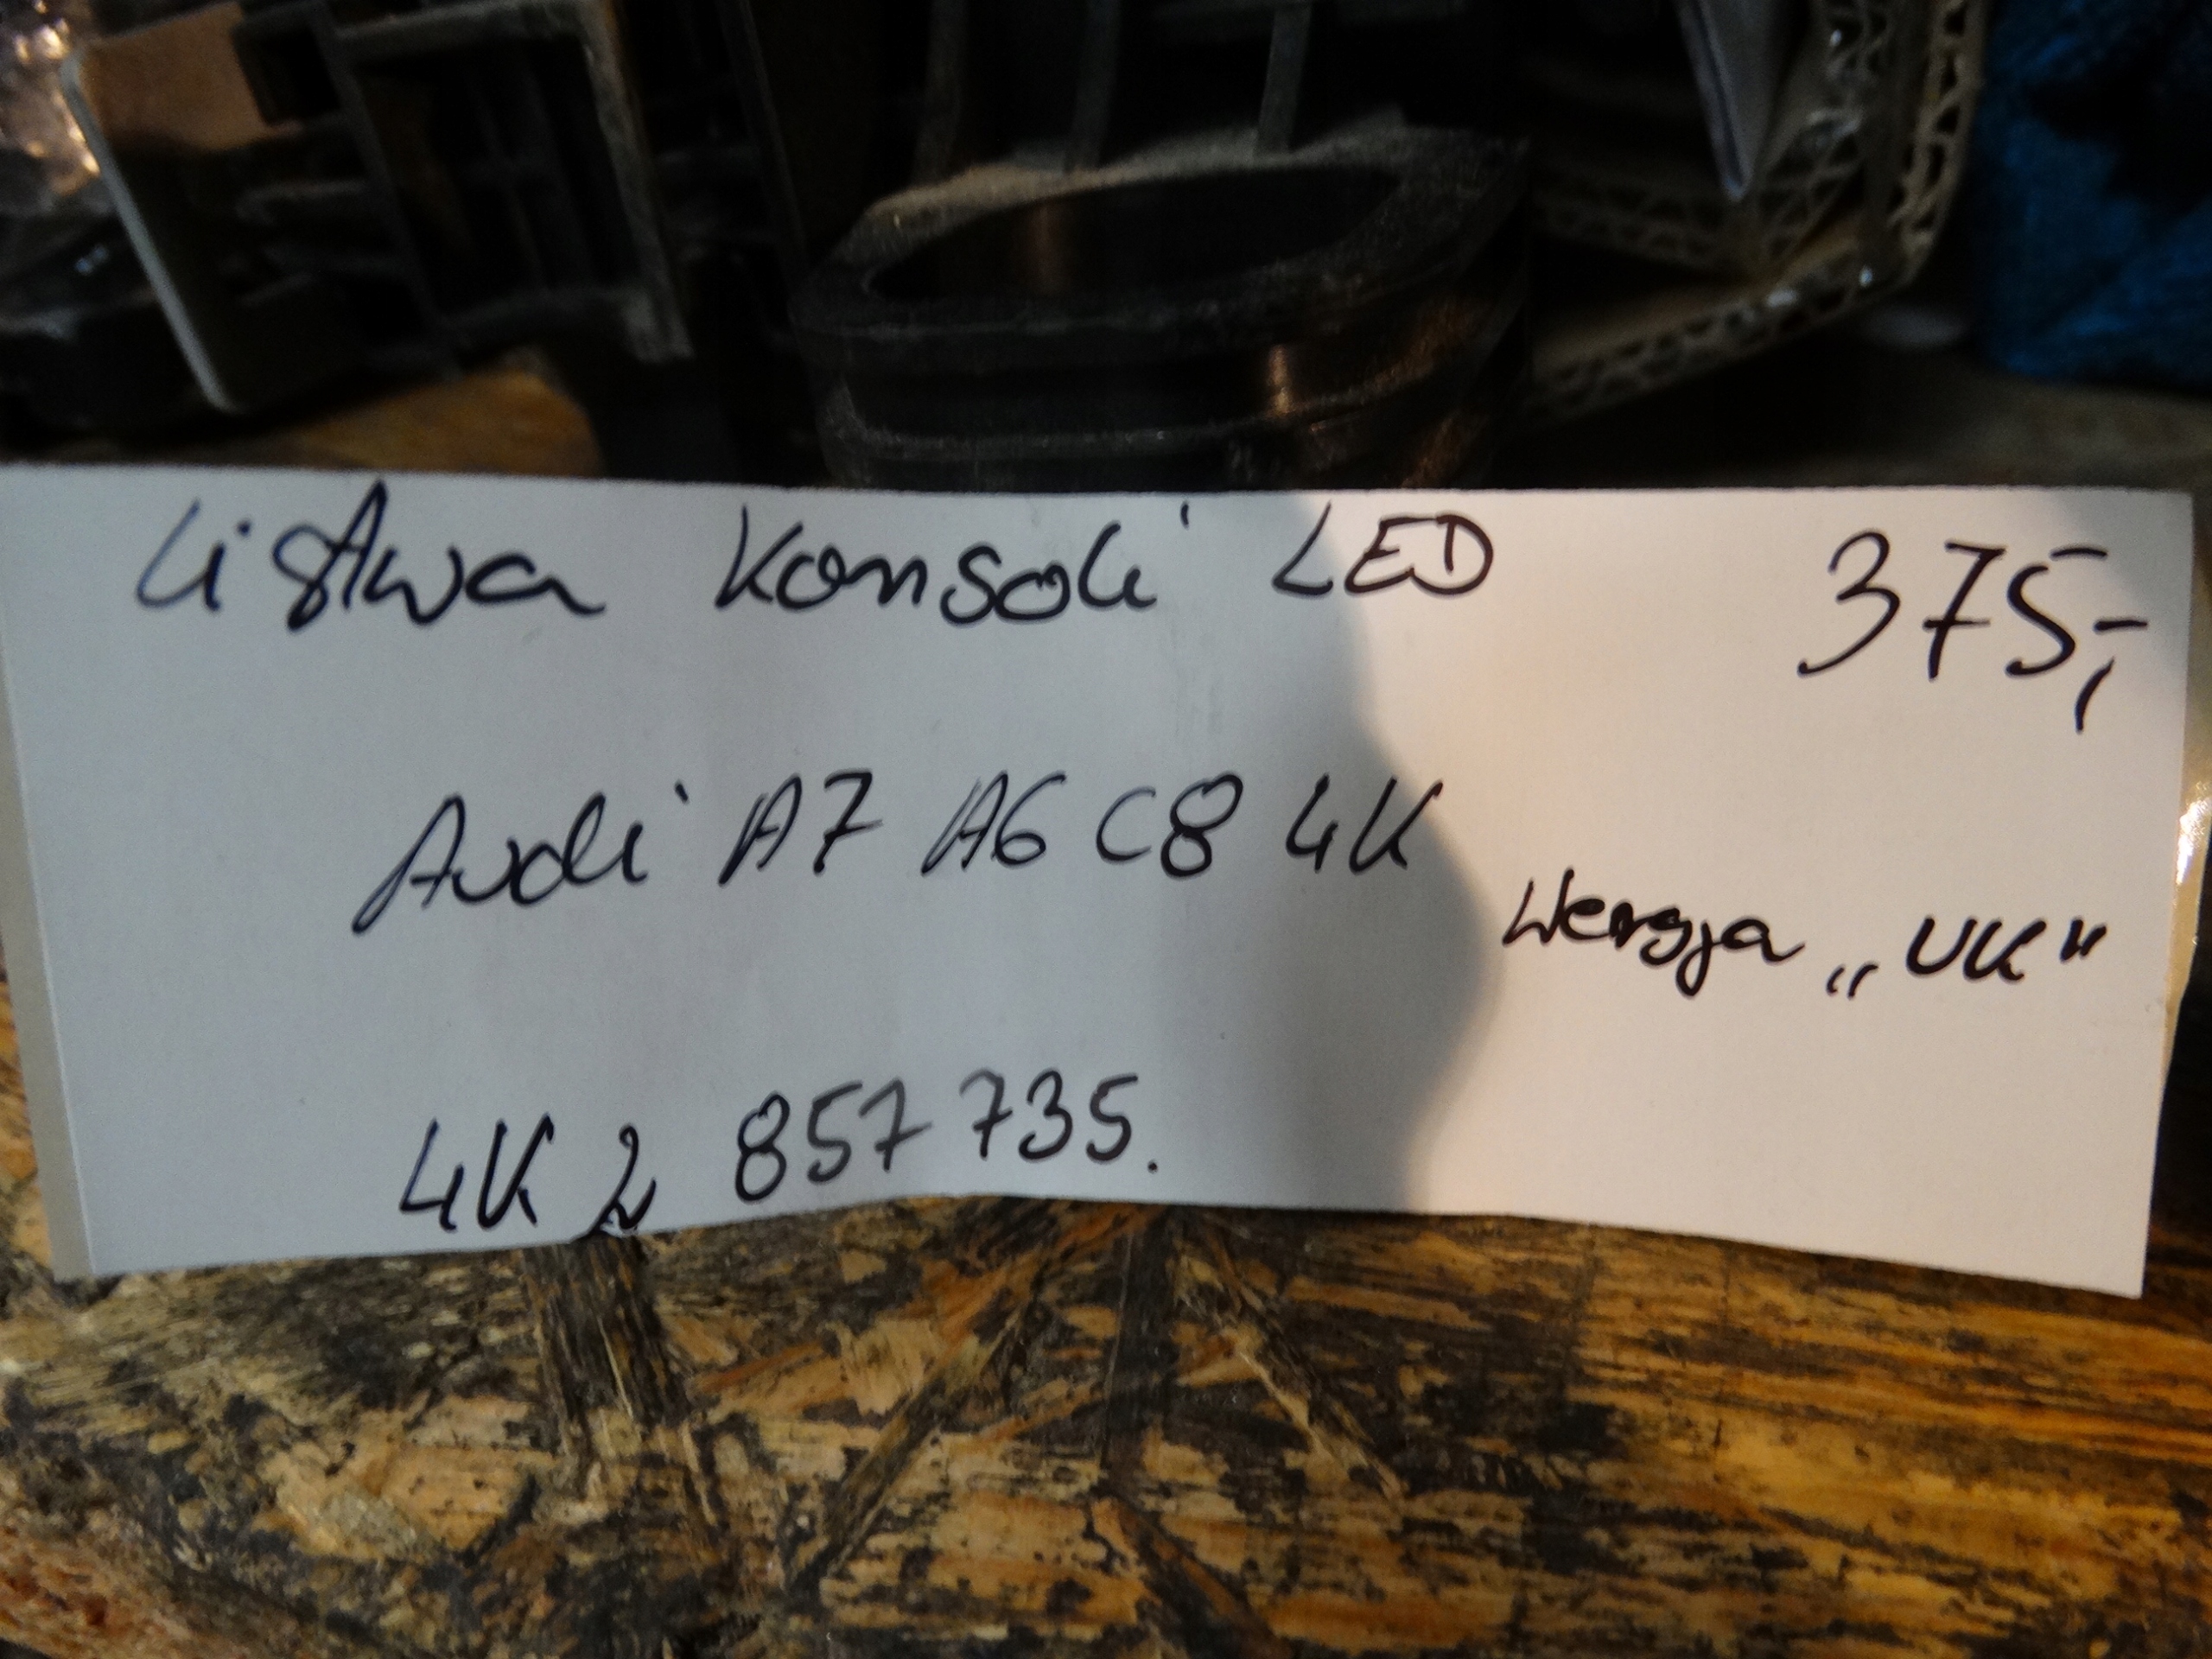 Listwa Konsoli LED 375,-
Audi A7 A6 C8 4K
Wersja „UK"
4K2 857 735.